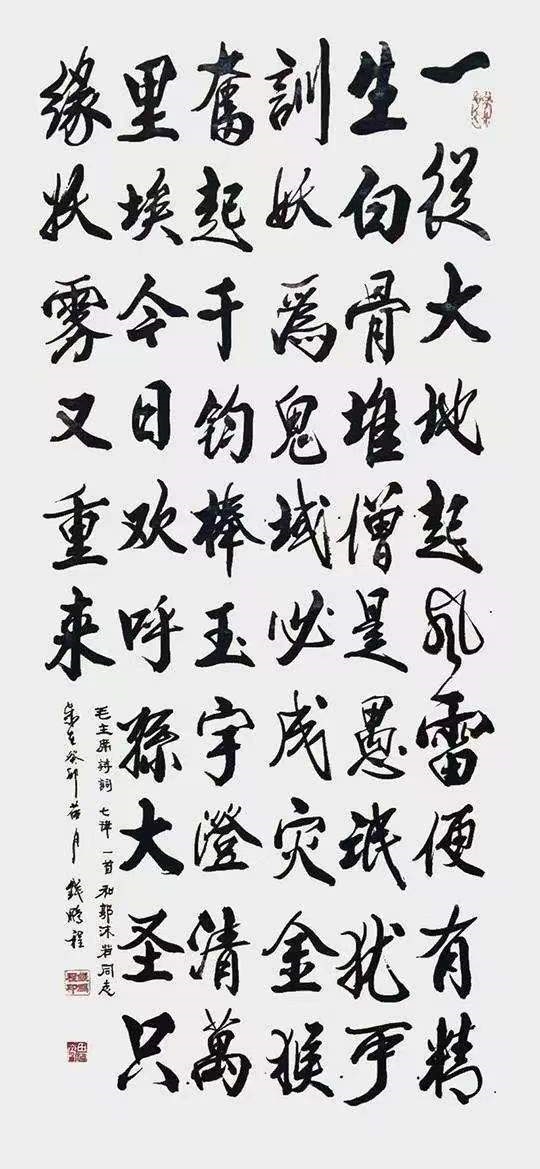 一從大地起风雷便有精
生白骨堆僧是愚氓犹可
訓妖爲鬼域必成灾金猴
奮起千鈞棒玉宇澄清萬
里埃今日欢呼孫大圣只
緣妖雾又重来
毛主席詩詞七律一首和郭沫若同志
歲在癸卯荷月錢鵬程
錢鵬程印